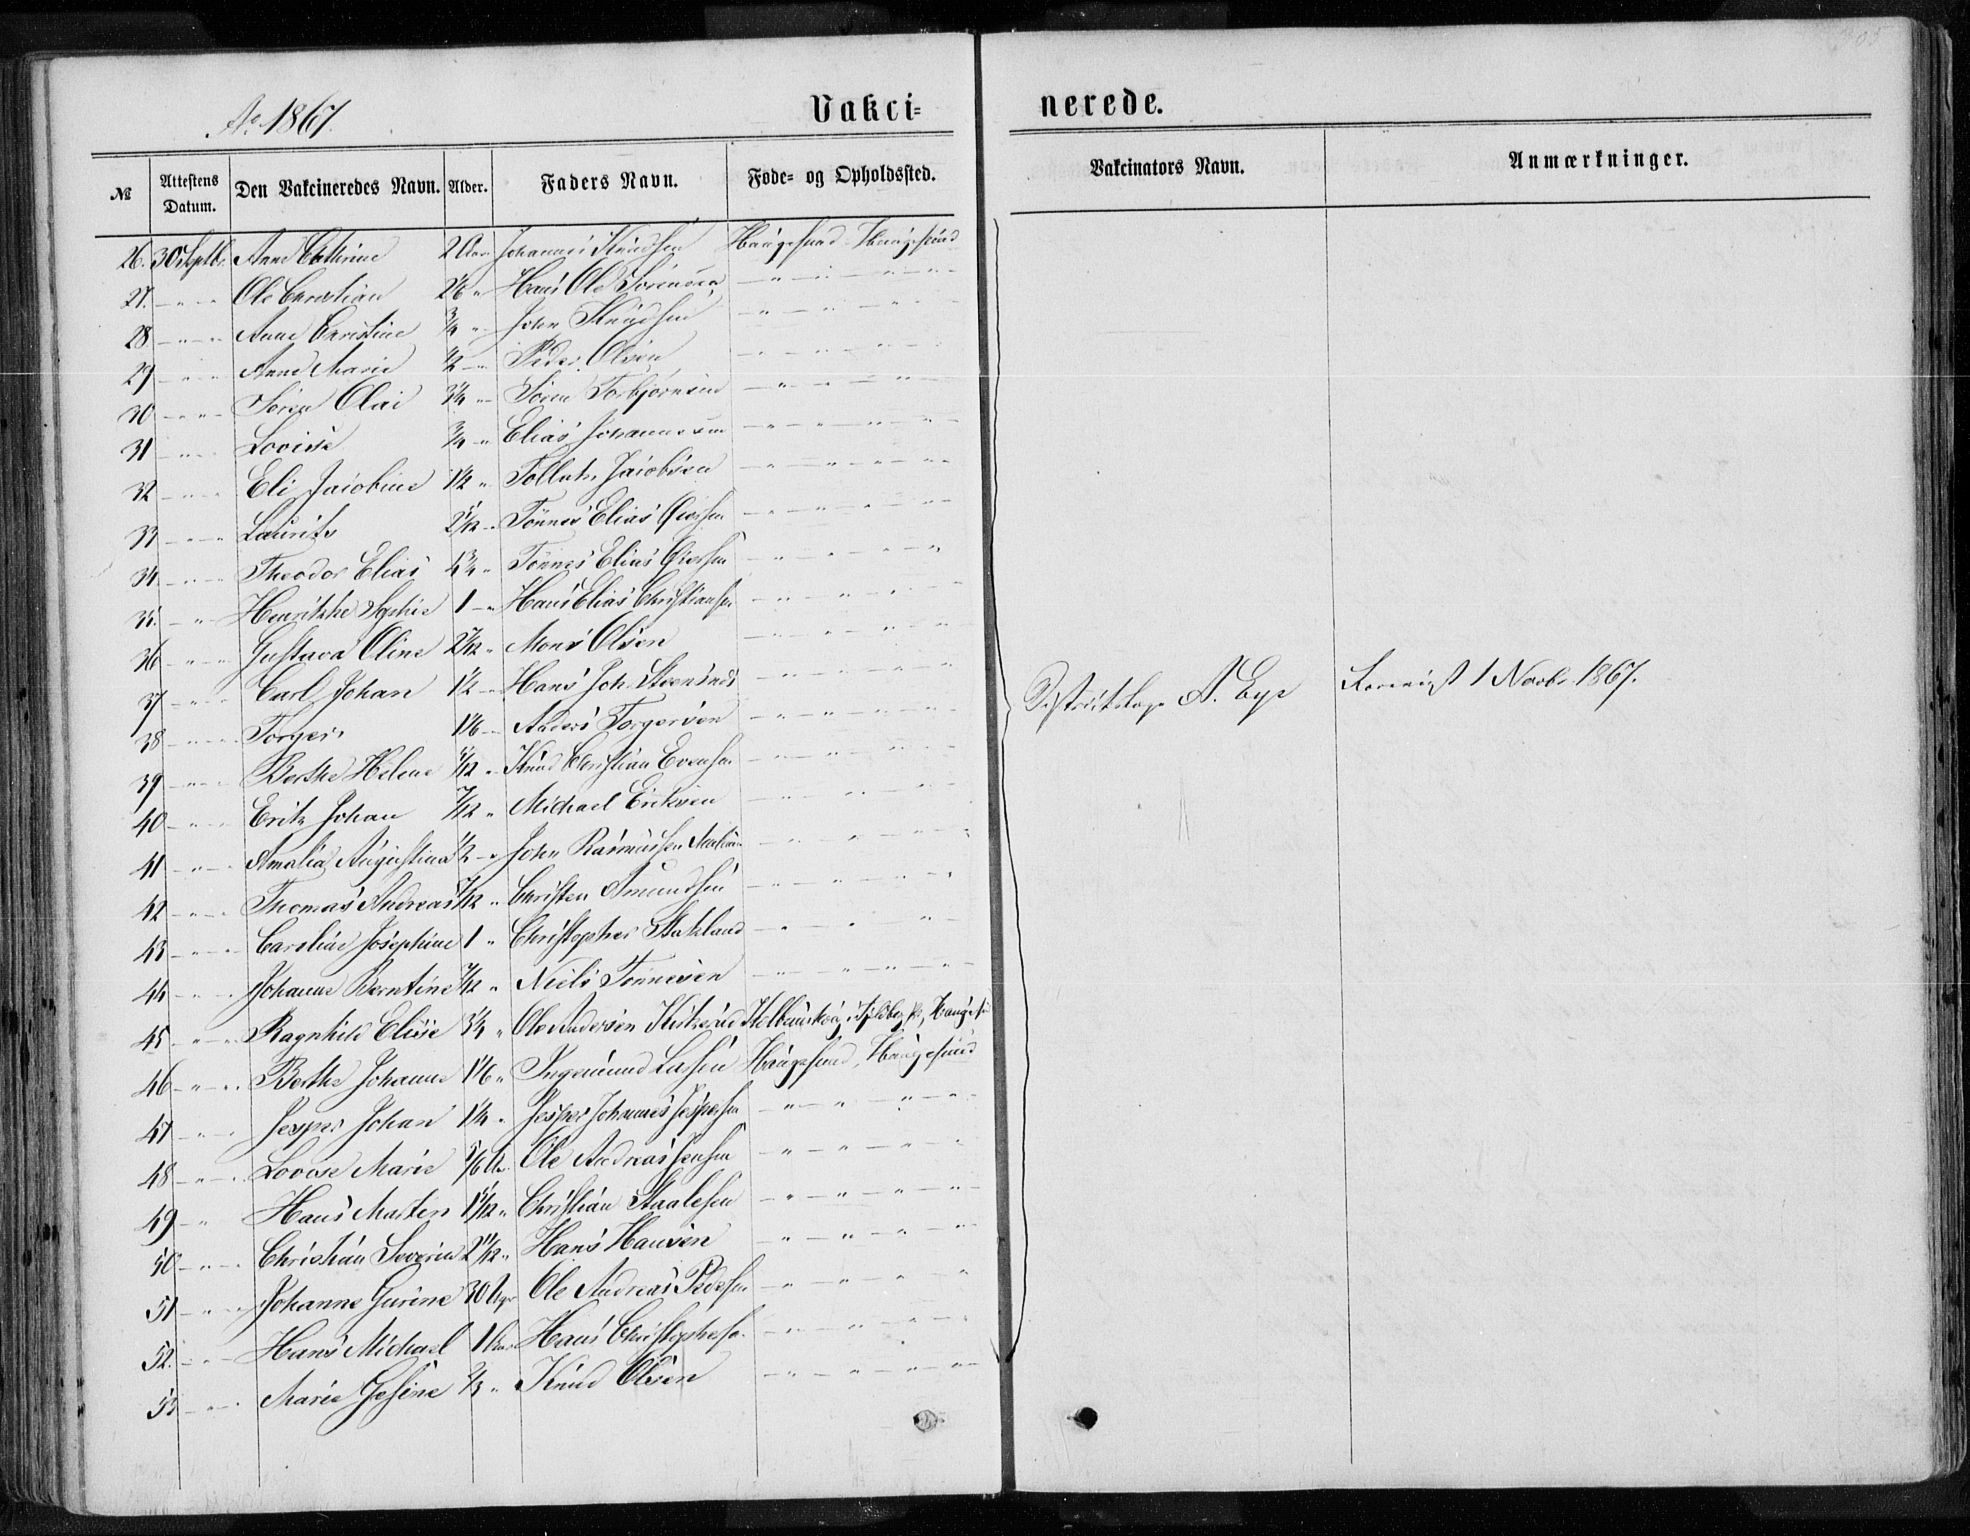 Ao 1867.
Vakci= nerede.
№ Attestens Datum. Den Vakcineredes Navn. Alder. Faders Navn. Føde= og Opholdssted. Vakcinators Navn. Anmærkninger.
26. 30 Septbr. Anne Cathrine 2 Aar Johannes Knudsen Haugesund Haugesund
27. - " - " Ole Christian " Hans Ole Sørensen - " - " - " - "
28 - " - " Anne Christine 3/4 " John Knudsen - " - " - "
29 - " - " Anne Marie 1/2 - " Peder Olsen - " - " - "
30 - " - " Søren Olai 3/4 " Søren Torbjørnsen - " - " - "
31 - " - " Lovise 3/4 " Elias Johannessen - " - " - "
32 - " - " Eli Jacobine 1 1/2 " Jacobsen - " - " - "
33 - " - " Laurits " Tønnes Elias - " - " - "
34. - " - " Theodor Elias 4 3/4 " Tønnes Elias - " - " - "
35. - " - " Henrikke Sophie 1 - " Hans Elias Christiansen - " - " - "
36 - " - " Gustava Oline 2 7/12 " Mons Olsen - " - " - "
37 - " - " Carl Johan 1 1/2 - " Hans Joh. - " - " - "
38 - " - " Torger 1 1/6 - " Anders Torgersen - " - " - "
Distriktslæge A. Eye Revaccinat 1 Novbr. 1867.
39 - " - " Berthe Helene " Knud Christian Evensen - " - " - "
40 - " - " Erik Johan 7/12 " Michael Eriksen - " - " - "
41 - " - " Amalia Augustina 1/2 - " John Rasmussen - " - " - "
42 - " - " Thomas Andreas 7/12 " Christen Amundsen - " - " - "
43 - " - " Caroline Josephine 1 " Christopher Stakland - " - " - "
44 - " - " Johanne Berntine 7/12 " Niels Tønnesen - " - " - "
45. - " - " Ragnhild Elise 3/4 " Ole Andersen
46 - " - " Berthe Johanne 1 1/6 " Ingemund Larsen Haugesund, Haugesund
47 - " - " Jesper Johan 1 1/4 " Jesper Johannes Jespersen - " - " - "
48 - " - " Lovise Marie 5/6 Aar Ole Andreas Jensen - " - " - "
49 - " Hans Martin " Christian Staalesen - " - " - "
50 - " - " Christian Severin 2 11/12 " Hans Hansen - " - " - "
51 - " - " Johanne Gurine 30 Uger Ole Andreas Pedersen - " - " - "
52. - " - " Hans Michael 1 Aar Hans Christophersen - " - " - "
53 - " - " Marie Gesine 2/3 " Knud Olsen - " - " - "